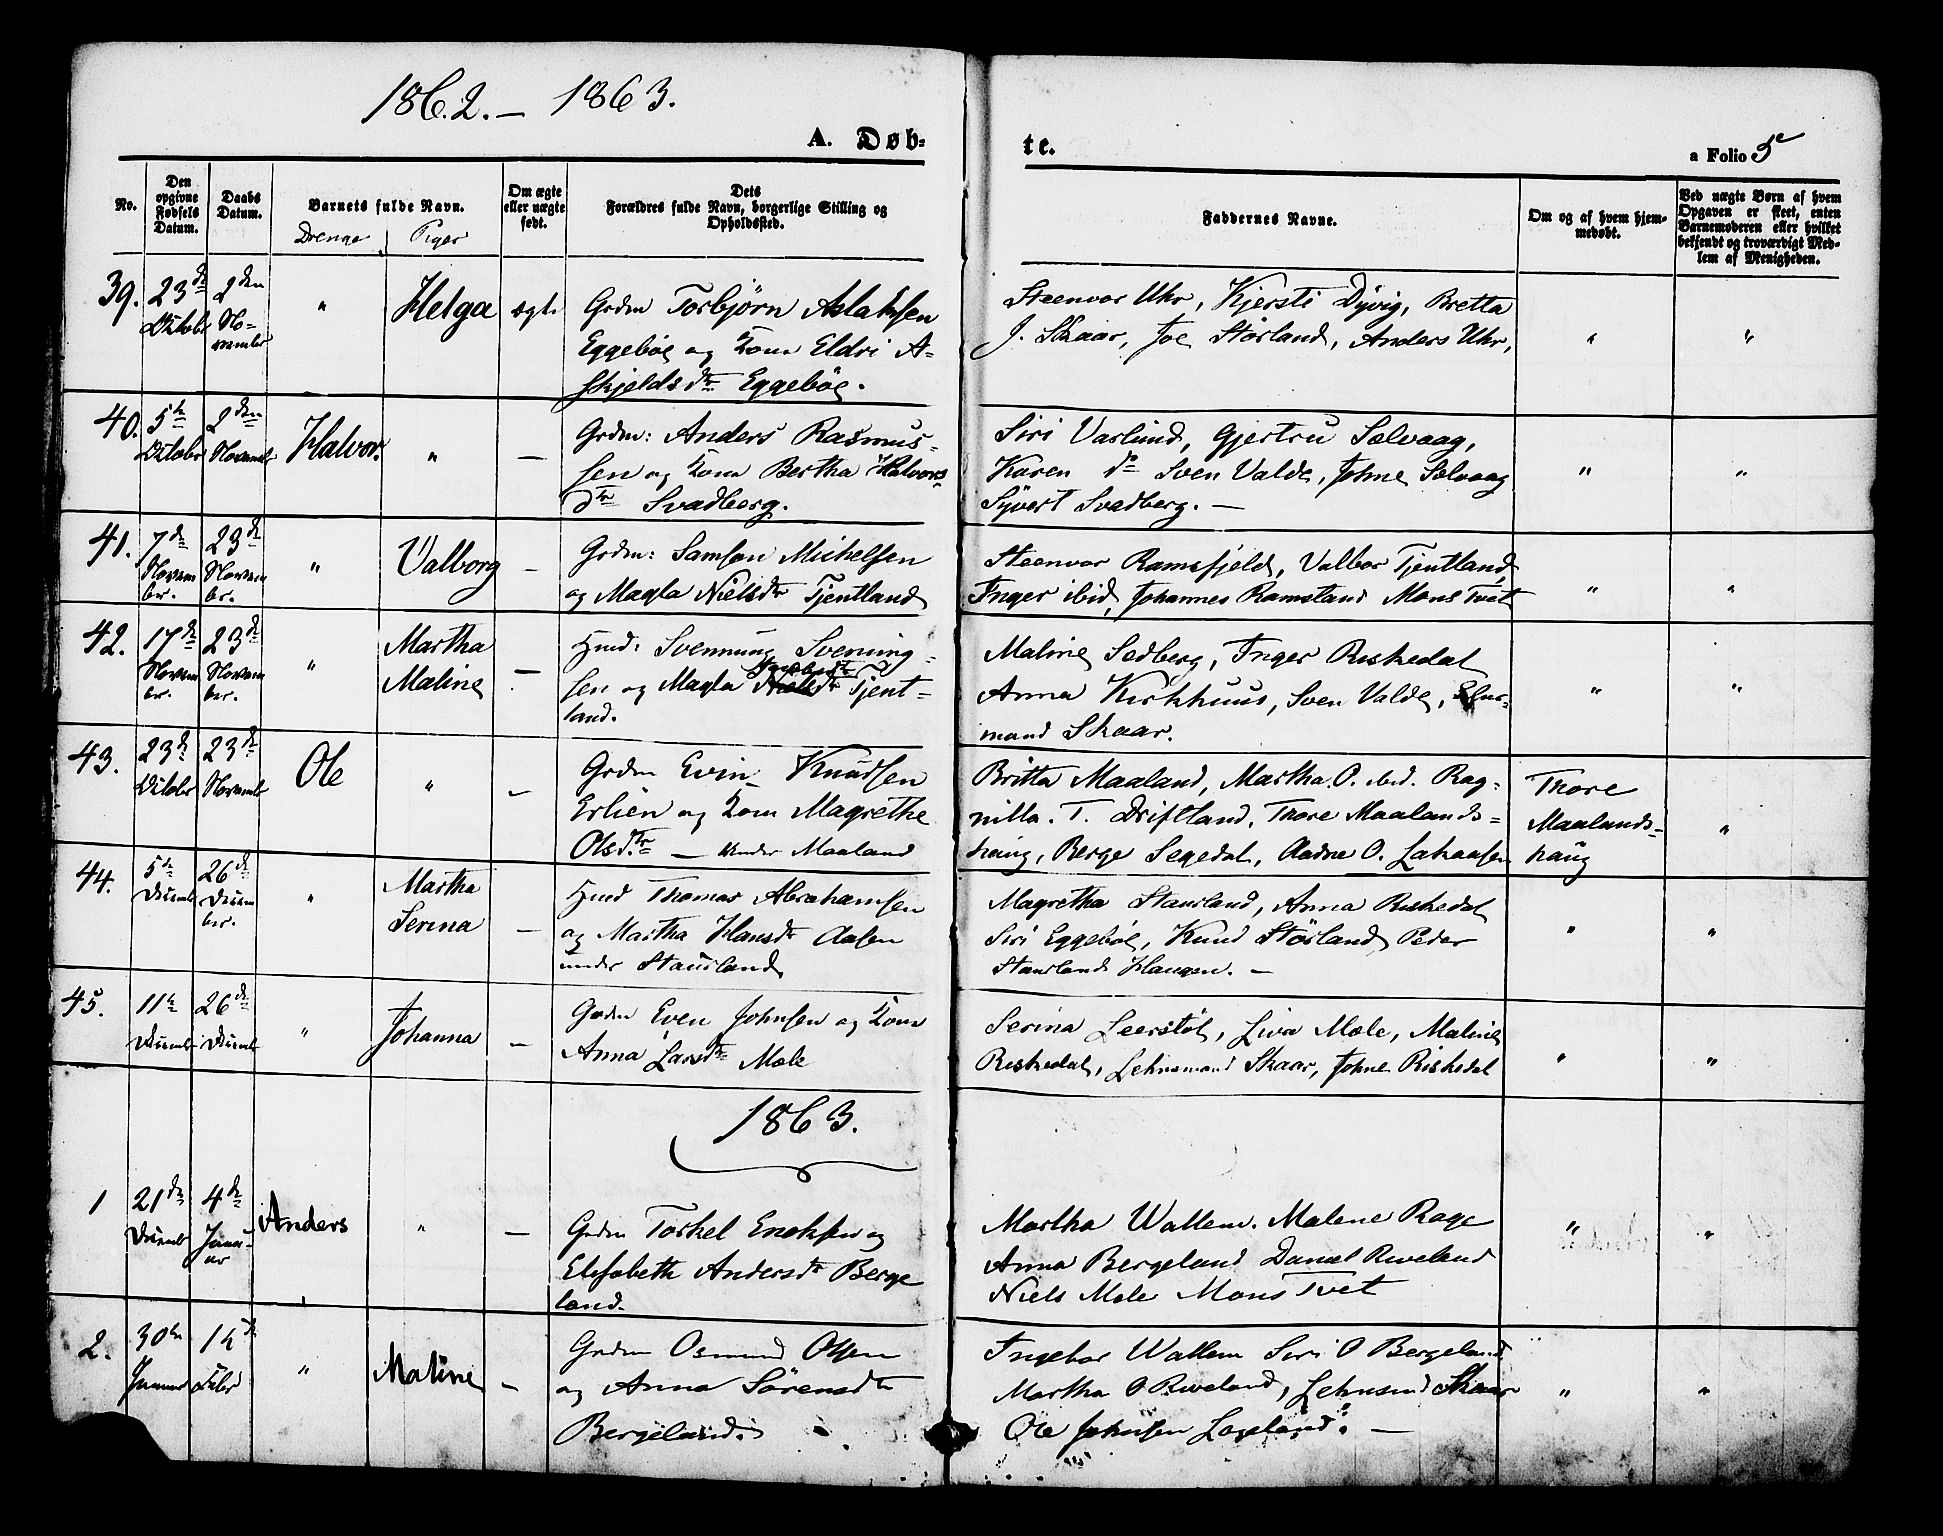 1862. – 1863.
A. Døb-
te.
a Folio 5
No.
Den opgivne Fødsels Datum.
Daabs Datum.
Barnets fulde Navn.
Drenge
Piger
Om ægte eller uægte født.
Dets Forældres fulde Navn, borgerlige Stilling og Opholdssted.
Faddernes Navne.
Om og af hvem hjemmedøbt.
Ved uægte Børn af hvem Opgaven er skeet, enten Barnemoderen eller hvilket bekjendt og troværdigt Medlem af Menigheden.
39. 23de Octobr 2den No-vember " Helga ægte
Grdm Torbjørn Aslaksen
Eggebøe og Kone Eldri A-
skjeldsdtr Eggebøe.
Steenvor Uhr, Kjersti Dyvig, Bretta
J. Skaar, Joe Störland, Anders Uhr,
" "
40. 5te Octobr 2den Novembr Halvor. " —
Grdm: Anders Rasmus-
sen og Kone Bertha Halvors-
dtr Svadberg.
Siri Varlund, Gjertru Selvaag,
Karen do Sven Valde, Johne Selvaag
Syvert Svadberg. —
" "
41. 7de Novem ber. 23de Novem br. " Valborg –
Grdm: Samson Michelsen
og Magla Nielsdtr Tjentland
Steenvor Ramsfjeld, Valbor Tjentland,
Inger ibid, Johannes Ramstland Mons Tvet
" "
42. 17de Novem ber. 23de Novem ber. " Martha Maline –
Hmd: Svennung Svenning-
sen og Magla Nielsdtr Tjent-
land.
Maline Sedberg, Inger Riskedal
Anna Kirkhuus, Sven Valde,
mand Skaar.
" "
43. 23de Octobr 23de Novembr Ole " –
Grdm Evin Knudsen
Erlien og Kone Magrethe
Olsdtr — under Maaland
Britta Maaland, Martha O. ibid. Rag-
nilla. T. Driftland, Thore Maalands-
haug, Berge Segedal, Aadne O.
Thore Maalands- haug
"
44. 5te Decemb 26de Decem ber. " Martha Serina –
Hmd Thomas Abrahamsen
og Martha Hansdtr Aasen
under Stausland
Magretha Stausland, Anna Riskedal
Siri Eggebøe, Knud Störland, Peder
Stausland Haugen. —
" "
45. 11te Decembr 26de Decembr " Johanna –
Grdm Even Johnsen og Kone
Anna Larsdtr Mæle
Serina Leerstöl, Liva Mæle, Maline
Riskedal, Lehnsmand Skaar, Johne Riskedal
" "
1863.
1 21de Decemb 4de Janu-ar Anders " –
Grdm Torkel Enoksen og
Elisabeth Andersdtr Berge
land.
Martha Wallem. Malene Rage
Anna Bergeland Daniel Riveland
Niels Mæle Mons Tvet
" "
2. 30te Januar Febr " Maline –
Grdm Osmund Olsen
og Anna Sörensdtr
Bergeland.
Ingebor Wallem Siri O Bergeland
Martha O Riveland, Lehnsmd Skaar
Ole Johnsen Lageland. —
" "